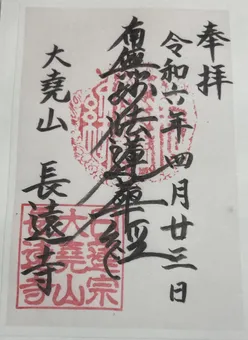 奉拝
令和六年四月廿三日
南無妙法蓮華経
大堯山
長遠寺
日蓮宗
大堯山
長遠寺